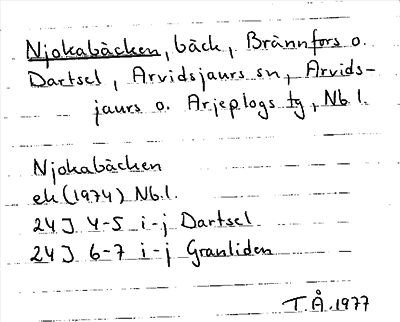 Njokabäcken, bäck, Brännfors o.
Dartsel, Arvidsjaurs sn, Arvids-
jaurs o. Arjeplogs tg, Nb.l.
Njokabäcken
ek (1974) Nb.l.
24J 4-5 i-j Dartsel
24J 6-7 i-j Granliden
T.Å.1977